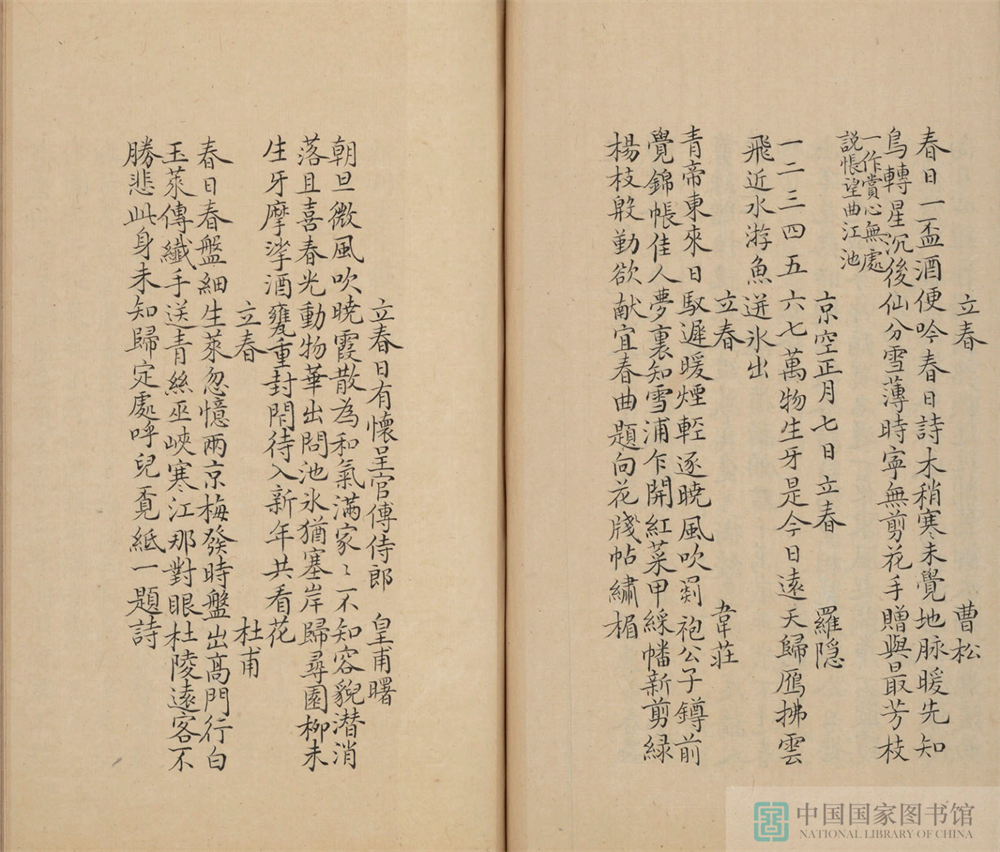 立春 曹松
春日一盃酒便吟春日詩木稍寒未覺地脉暖先知
鳥轉星沉後仙分雪薄時寧無剪花手贈與最芳枝
一作賞心無處
説悵望曲江池
京空正月七日立春 羅隐
一二三四五六七萬物生牙是今日遠天歸鴈拂雲
飛近水游魚迸氷出
立春 韋莊
青帝東來日馭遲暖煙輕逐曉風吹罽袍公子鐏前
覺錦帳佳人夢裏知雪浦乍開紅菜甲綵幡新剪緑
楊枝殷勤欲献宜春曲題向花牋帖繡楣
立春日有懷呈官傅侍郎 皇甫曙
朝旦微風吹曉霞散為和氣滿家〻不知容貌潜消
落且喜春光動物華出問池氷猶塞岸歸尋園柳未
生牙摩挲酒甕重封閇待入新年共看花
立春 杜甫
春日春盤細生菜忽憶兩京梅發時盤出髙門行白
玉菜傳纎手送青絲巫峽寒江那對眼杜陵遠客不
勝悲此身未知歸定處呼兒覔紙一題詩
中国国家图书馆
NATIONAL LIBRARY OF CHINA